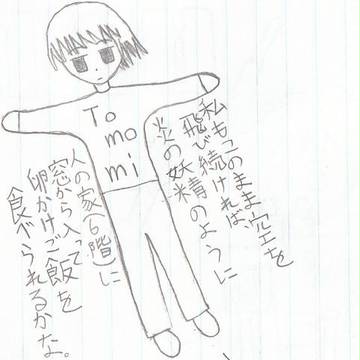 To
mo
mi
私もこのまま空を
飛び続ければ、
炎の妖精のように
人の家(6階)に
窓から入って
卵かけご飯を
食べられるかな。